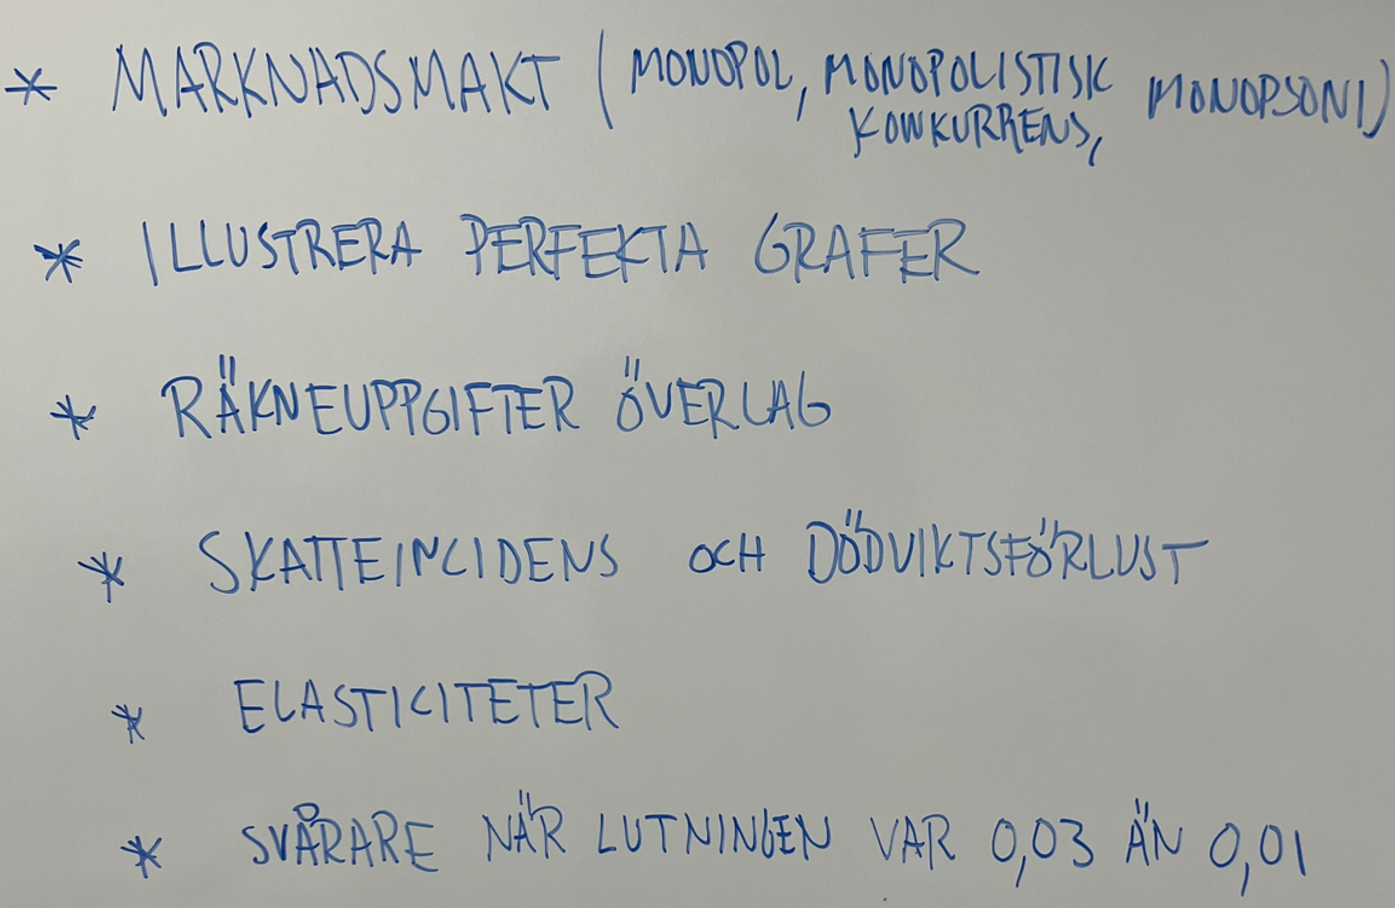 * MARKNADSMAKT (MONOPOL, MONOPOLISTISK KONKURRENS, MONOPSONI)
* ILLUSTRERA PERFEKTA GRAFER
* RÄKNEUPPGIFTER ÖVERLAG
* SKATTEINCIDENS OCH DÖDVIKTSFÖRLUST
* ELASTICITETER
* SVÅRARE NÄR LUTNINGEN VAR 0,03 ÄN 0,01